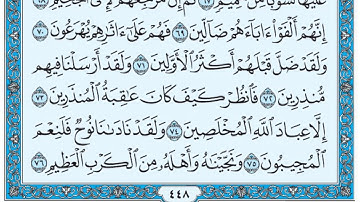 عَلَيْهَا لَشَوْبًا مِّنْ حَمِيمٍ ٦٧ ثُمَّ إِنَّ مَرْجِعَهُمْ لَإِلَى ٱلْجَحِيمِ ٦٨
إِنَّهُمْ أَلْفَوْا۟ ءَابَآءَهُمْ ضَآلِّينَ ٦٩ فَهُمْ عَلَىٰٓ ءَاثَٰرِهِمْ يُهْرَعُونَ ٧٠
وَلَقَدْ ضَلَّ قَبْلَهُمْ أَكْثَرُ ٱلْأَوَّلِينَ ٧١ وَلَقَدْ أَرْسَلْنَا فِيهِم
مُّنذِرِينَ ٧٢ فَٱنظُرْ كَيْفَ كَانَ عَٰقِبَةُ ٱلْمُنذَرِينَ ٧٣
إِلَّا عِبَادَ ٱللَّهِ ٱلْمُخْلَصِينَ ٧٤ وَلَقَدْ نَادَىٰنَا نُوحٌ فَلَنِعْمَ
ٱلْمُجِيبُونَ ٧٥ وَنَجَّيْنَٰهُ وَأَهْلَهُۥ مِنَ ٱلْكَرْبِ ٱلْعَظِيمِ ٧٦
٤٤٨